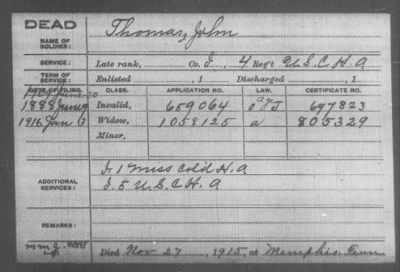 DEAD
NAME OF SOLDIER: Thomas, John
SERVICE: Late rank, Co. I, 4 Reg't U.S.C.H.A
TERM OF SERVICE: Enlisted , 1 Discharged , 1
DATE OF FILING. CLASS. APPLICATION NO. LAW. CERTIFICATE NO.
1888 June Invalid, 659064 697823
1916 Jan Widow, 1058125 a 805329
Minor,
ADDITIONAL SERVICES: I. 1 Miss Cold H.A
I. 5 U.S.C.H.A
REMARKS:
Died Nov 27, 1915, at Memphis, Tenn